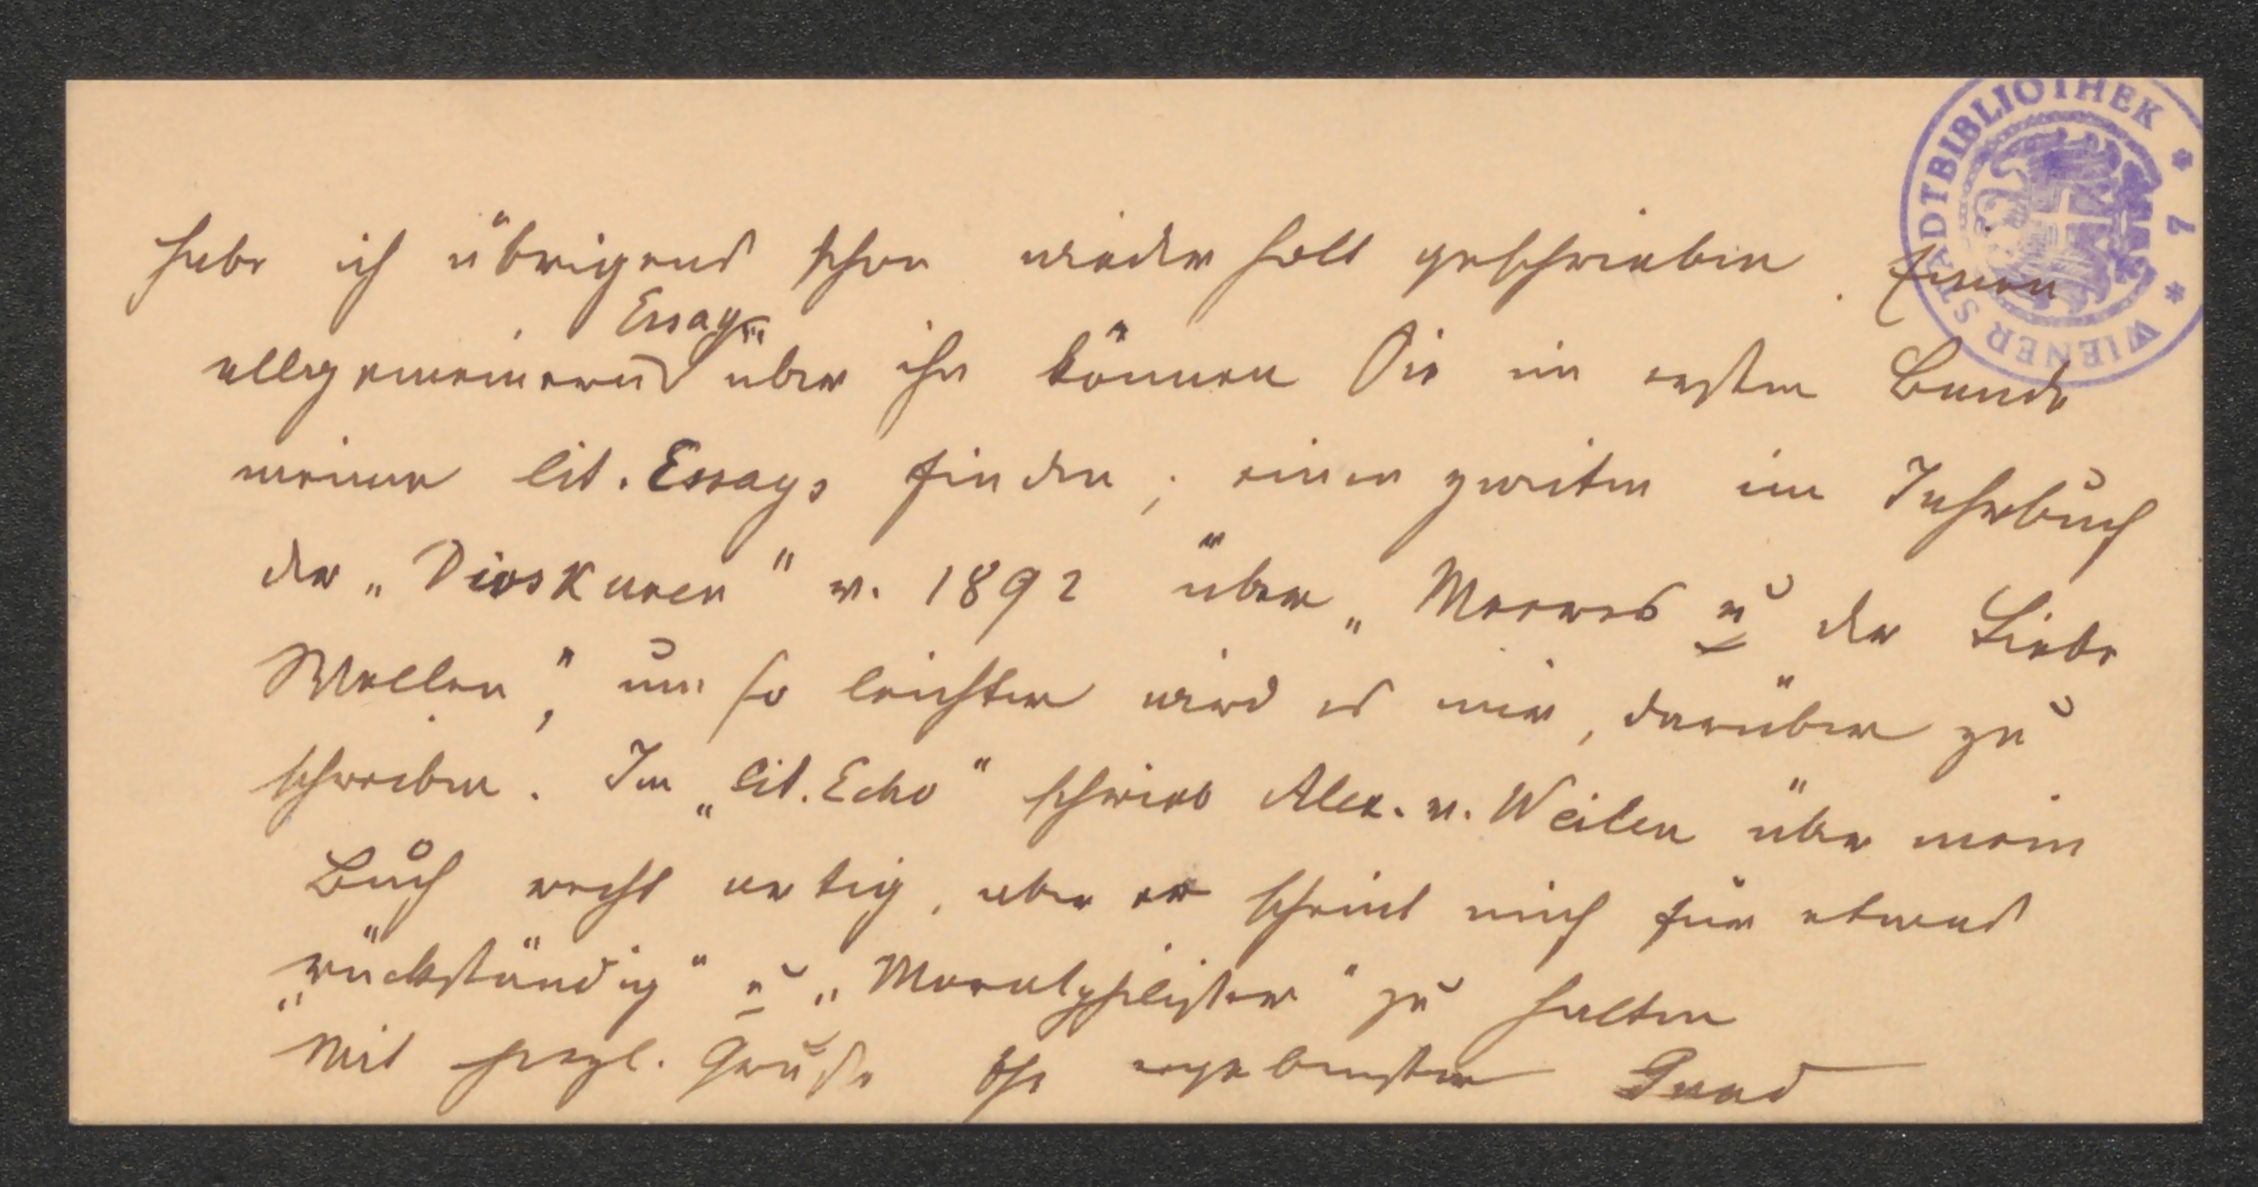 WIENER STADTBIBLIOTHEK * 7 *
habe ich übrigens schon wiederholt geschrieben. Einen
Essay
allgemeinern über ihn können Sie im ersten Bande
meiner lit. Essays finden; einen zweiten im Jahrbuch
der „Dioskuren“ v. 1892 über „Meeres u der Liebe
Wellen“, um so leichter wird es mir, darüber zu
schreiben. Im „lit. Echo“ schrieb Alex. v. Weilen über mein
Buch recht artig, aber er scheint mich für etwas
„rückständig“ u „Moralphilister“ zu halten
Mit herzl. Gruße Ihr ergebenster